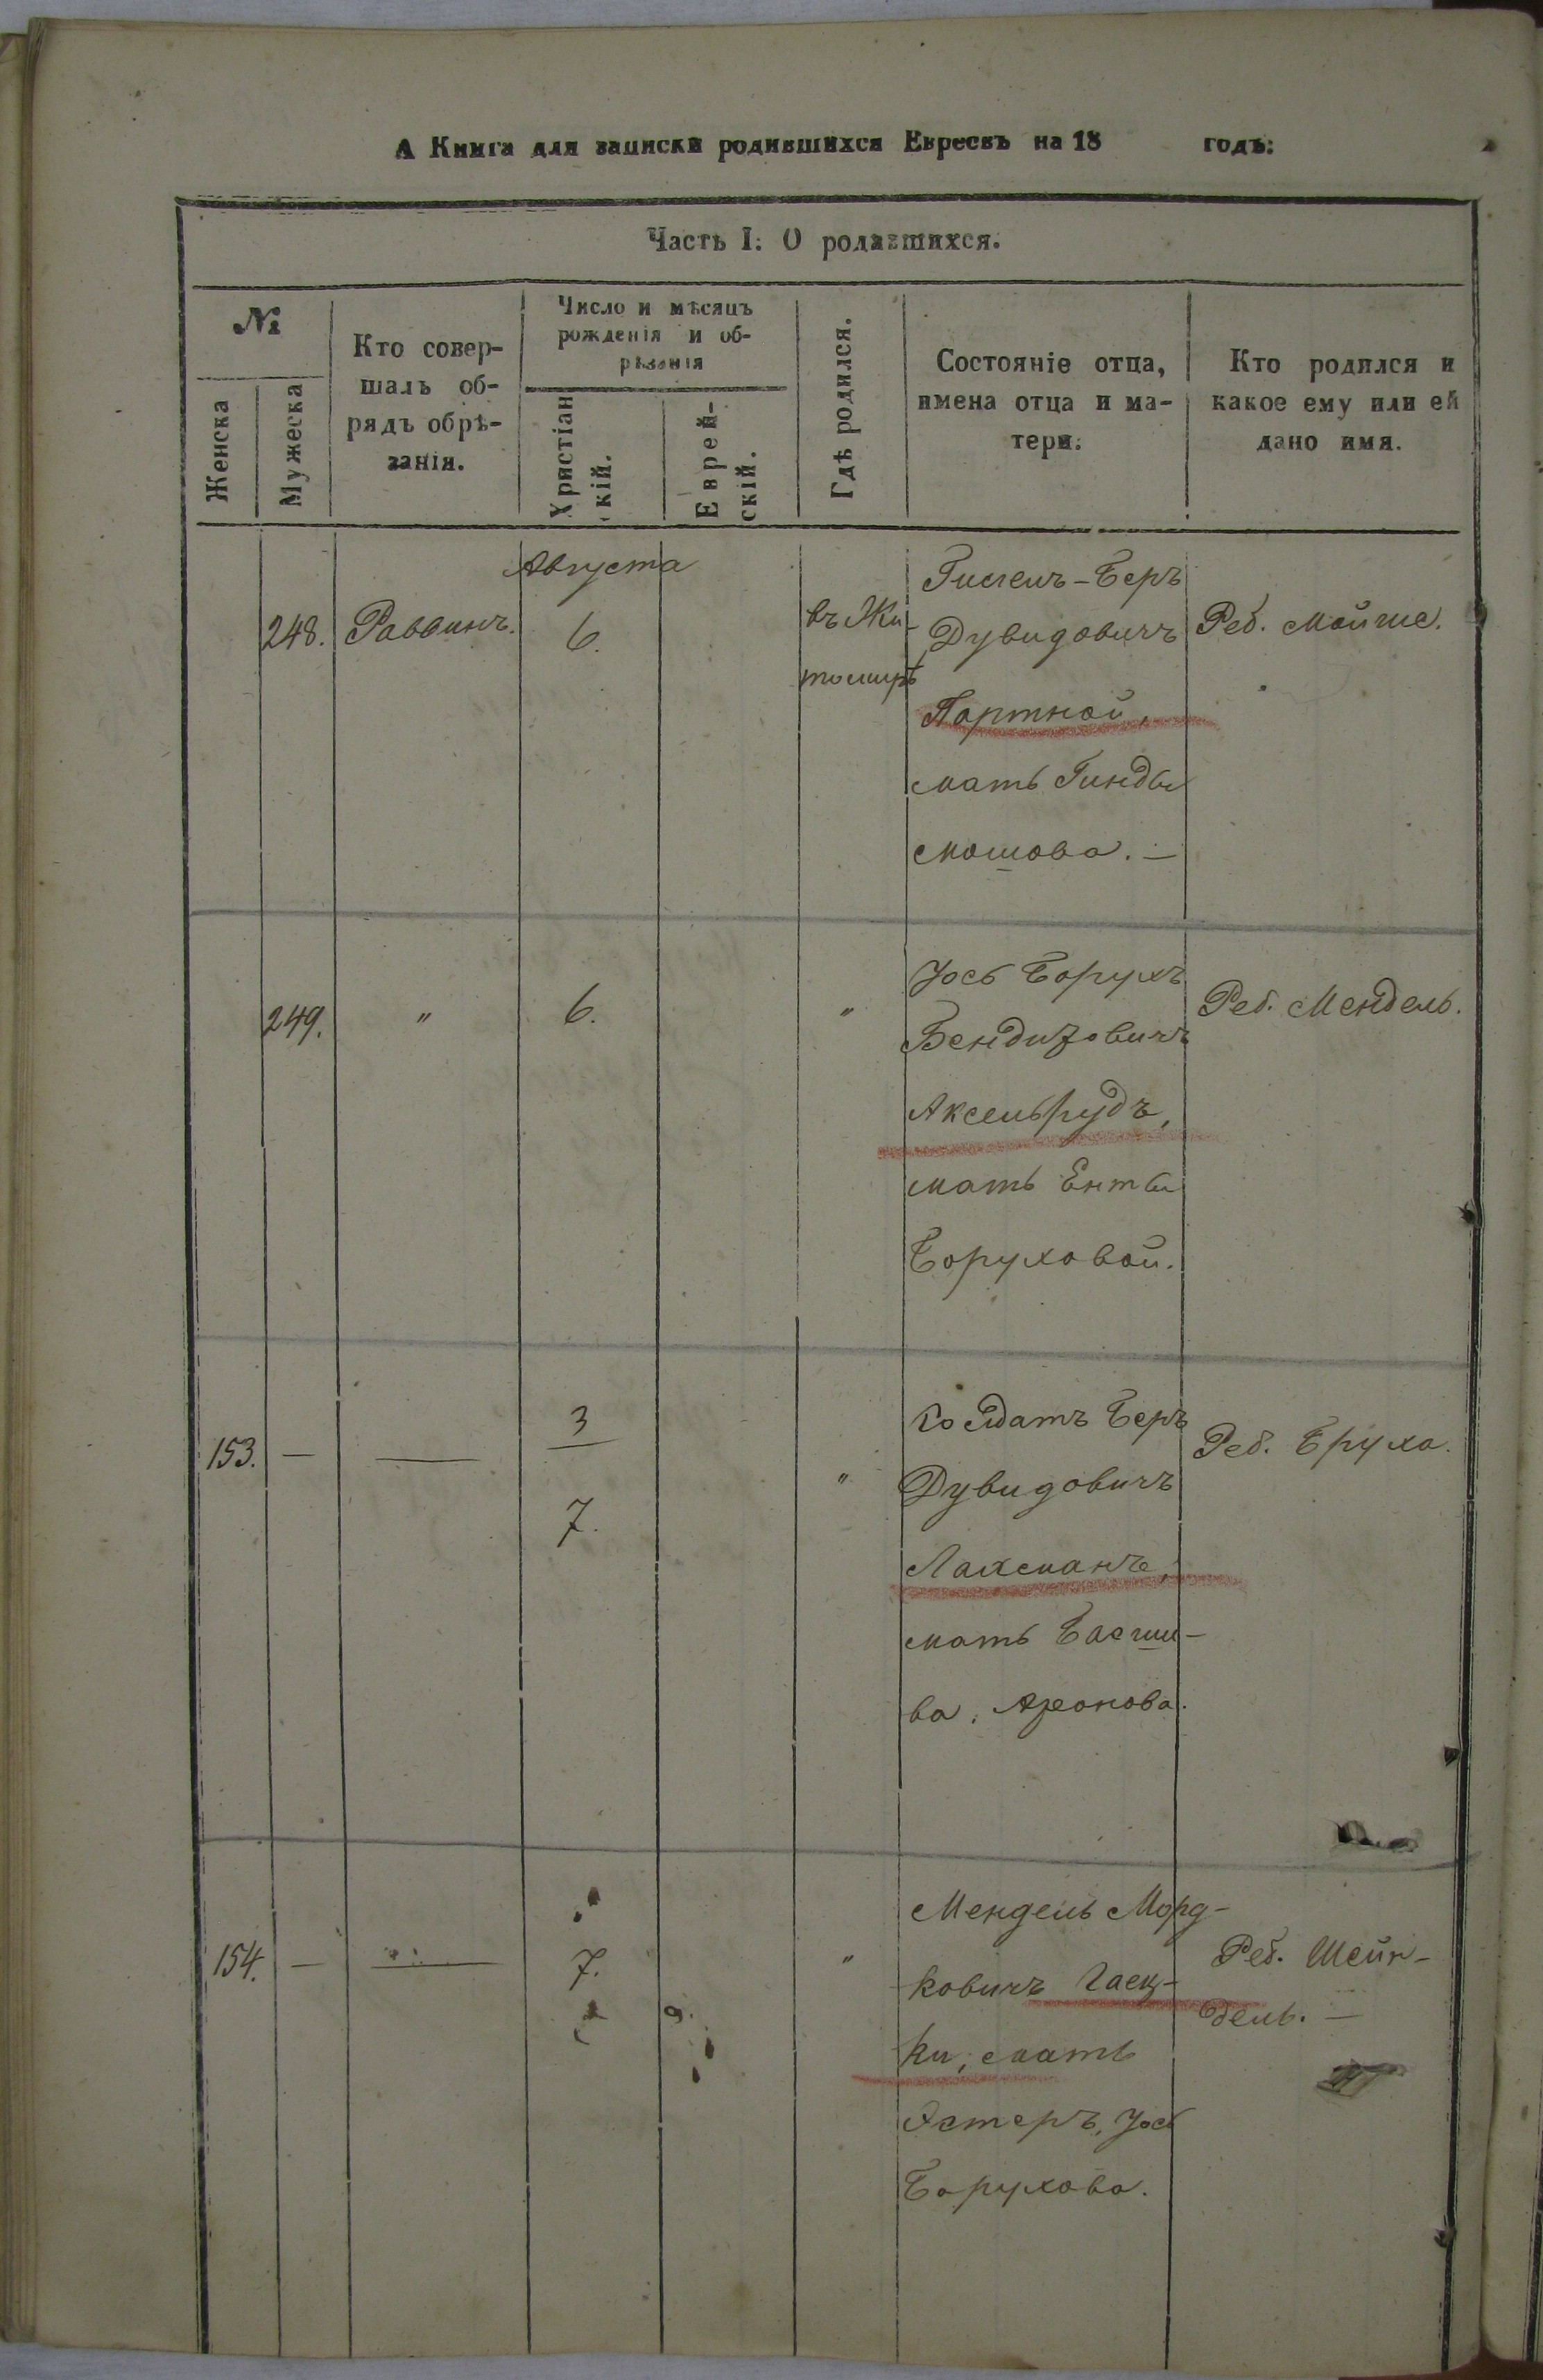 А Книга для записки родившихся Евреевъ на 18 годъ:
Часть I: О родившихся.
№
Женска
Мужеска
Кто совер-
шалъ об-
рядъ обрѣ-
занія.
Число и мѣсяцъ
рожденія и об-
рѣзанія
Христіан
скій.
Еврей-
скій.
Гдѣ родился.
Состояніе отца,
имена отца и ма-
тери.
Кто родился и
какое ему или ей
дано имя.
Августа
248. Раввинъ. 6.
въ Жи-
томирѣ
Беръ
Дувидовичъ
Портной,
мать Гинды
Мошова. —
Реб. Мойше.
249. " 6. "
Іось Борухъ
Бендитовичъ
Аксельрудъ,
мать Енты
Боруховой.
Реб. Мендель.
153. — —
3
7.
"
Солдатъ Беръ
Дувидовичъ
Лахманъ,
мать Басши-
ва. Аронова.
Реб. Бруха.
154. — — 7. 9. "
Мендель Морд-
ковичъ
ки, мать
Эстеръ, Іось
Борухова.
Реб. Шейн-
дель. —